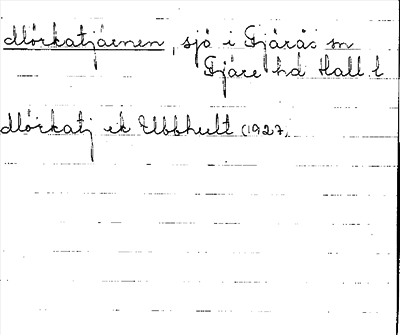 Mörkatjärnen, sjö i Fjärås sn
Fjäre hd Hall l
Mörkatj ek Ubbhult (1927,